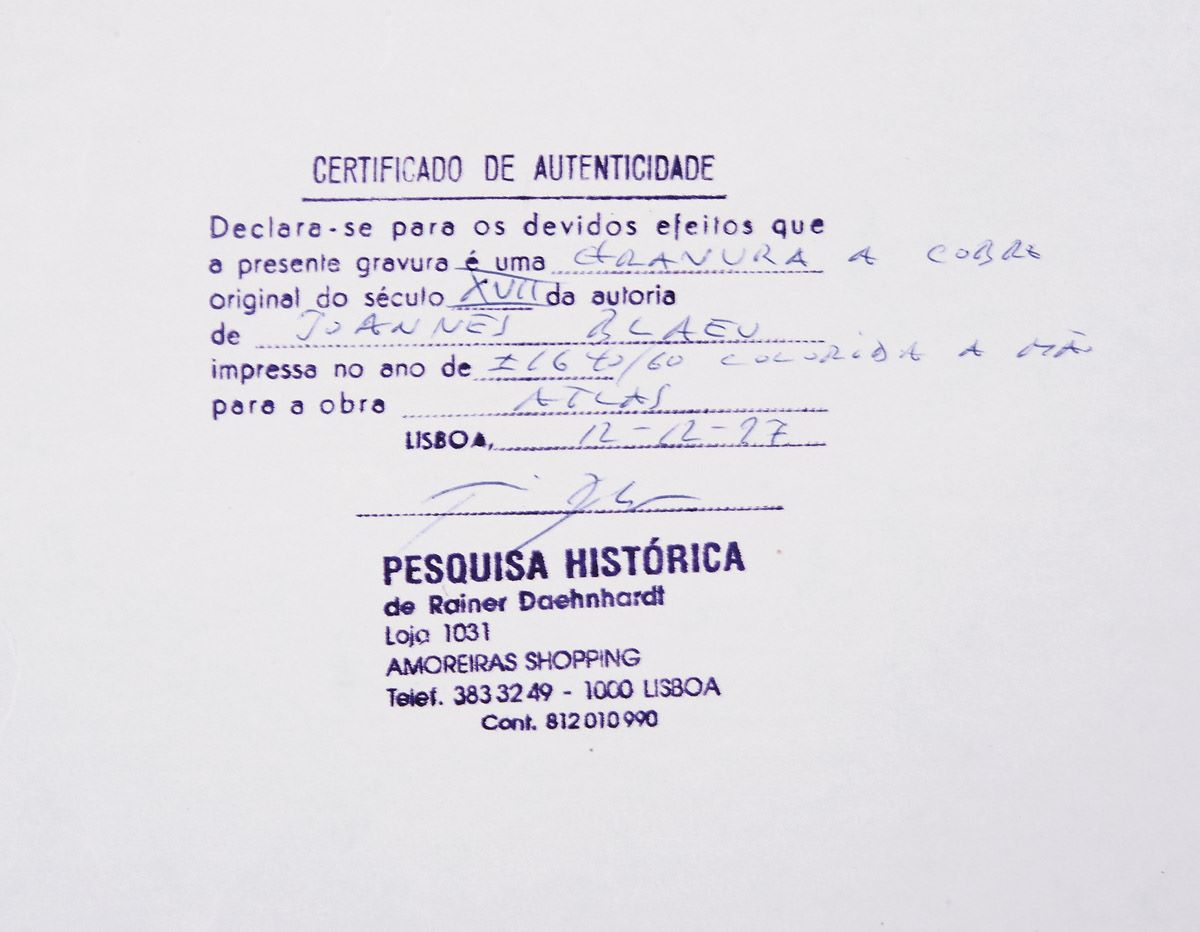 CERTIFICADO DE AUTENTICIDADE
Declara-se para os devidos efeitos que
a presente gravura é uma GRAVURA A COBRE
original do século XVII da autoria
de JOANNES BLAEU
impressa no ano de ±1640/60 COLORIDA A MÃO
para a obra ATLAS
LISBOA, 12-12-97
PESQUISA HISTÓRICA
de Rainer Daehnhardt
Loja 1031
AMOREIRAS SHOPPING
Telef. 383 32 49 - 1000 LISBOA
Cont. 812 010 990